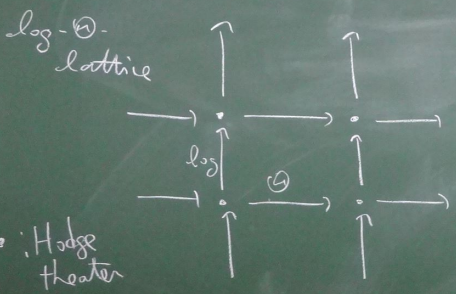 log-Θ-
lattice
log
Θ
• : Hodge
theater